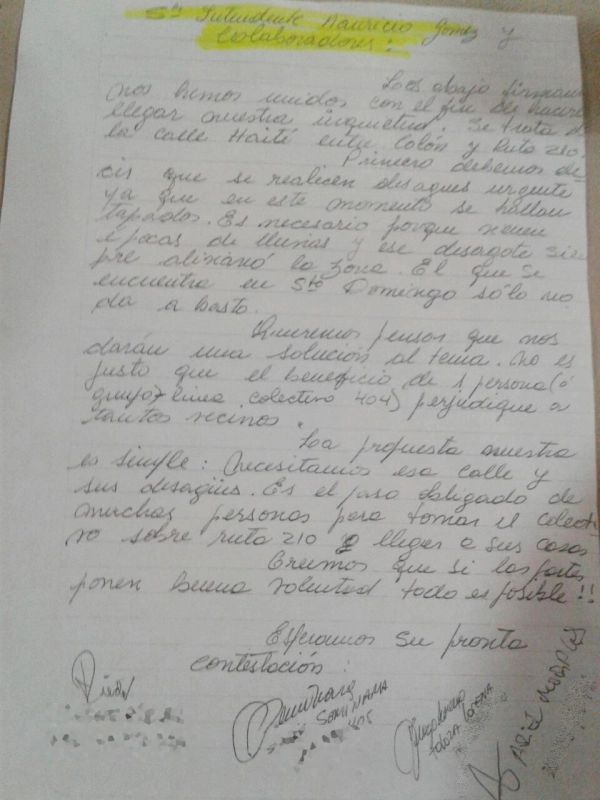 Sr Intendente Mauricio Gomez y
Colaboradores:
Los abajo firman
nos hemos unidos con el fin de hacer
llegar nuestra inquietud: Se trata d
la calle Haité entre Colón y Ruta 210.
Primero debemos de-
cir que se realicen desagues urgente
ya que en este momento se hallan
tapados. Es necesario porque vienen
epocas de lluvias y ese desagote siem
pre alivianó la zona. El que se
encuentra en Sto Domingo sólo no
da a basto.
Queremos pensar que nos
darán una solución al tema. No es
justo que el beneficio de 1 persona (ó
línea colectivo 404) perjudique a
tantos vecinos.
La propuesta nuestra
es simple: Necesitamos esa calle y
sus desagües. Es el paso obligado de
muchas personas para tomar el colecti
vo sobre ruta 210 y llegar a sus casas
Creemos que si las partes
ponen buena voluntad todo es posible!!
Esperamos su pronta
contestación:
ARIEL MORALES